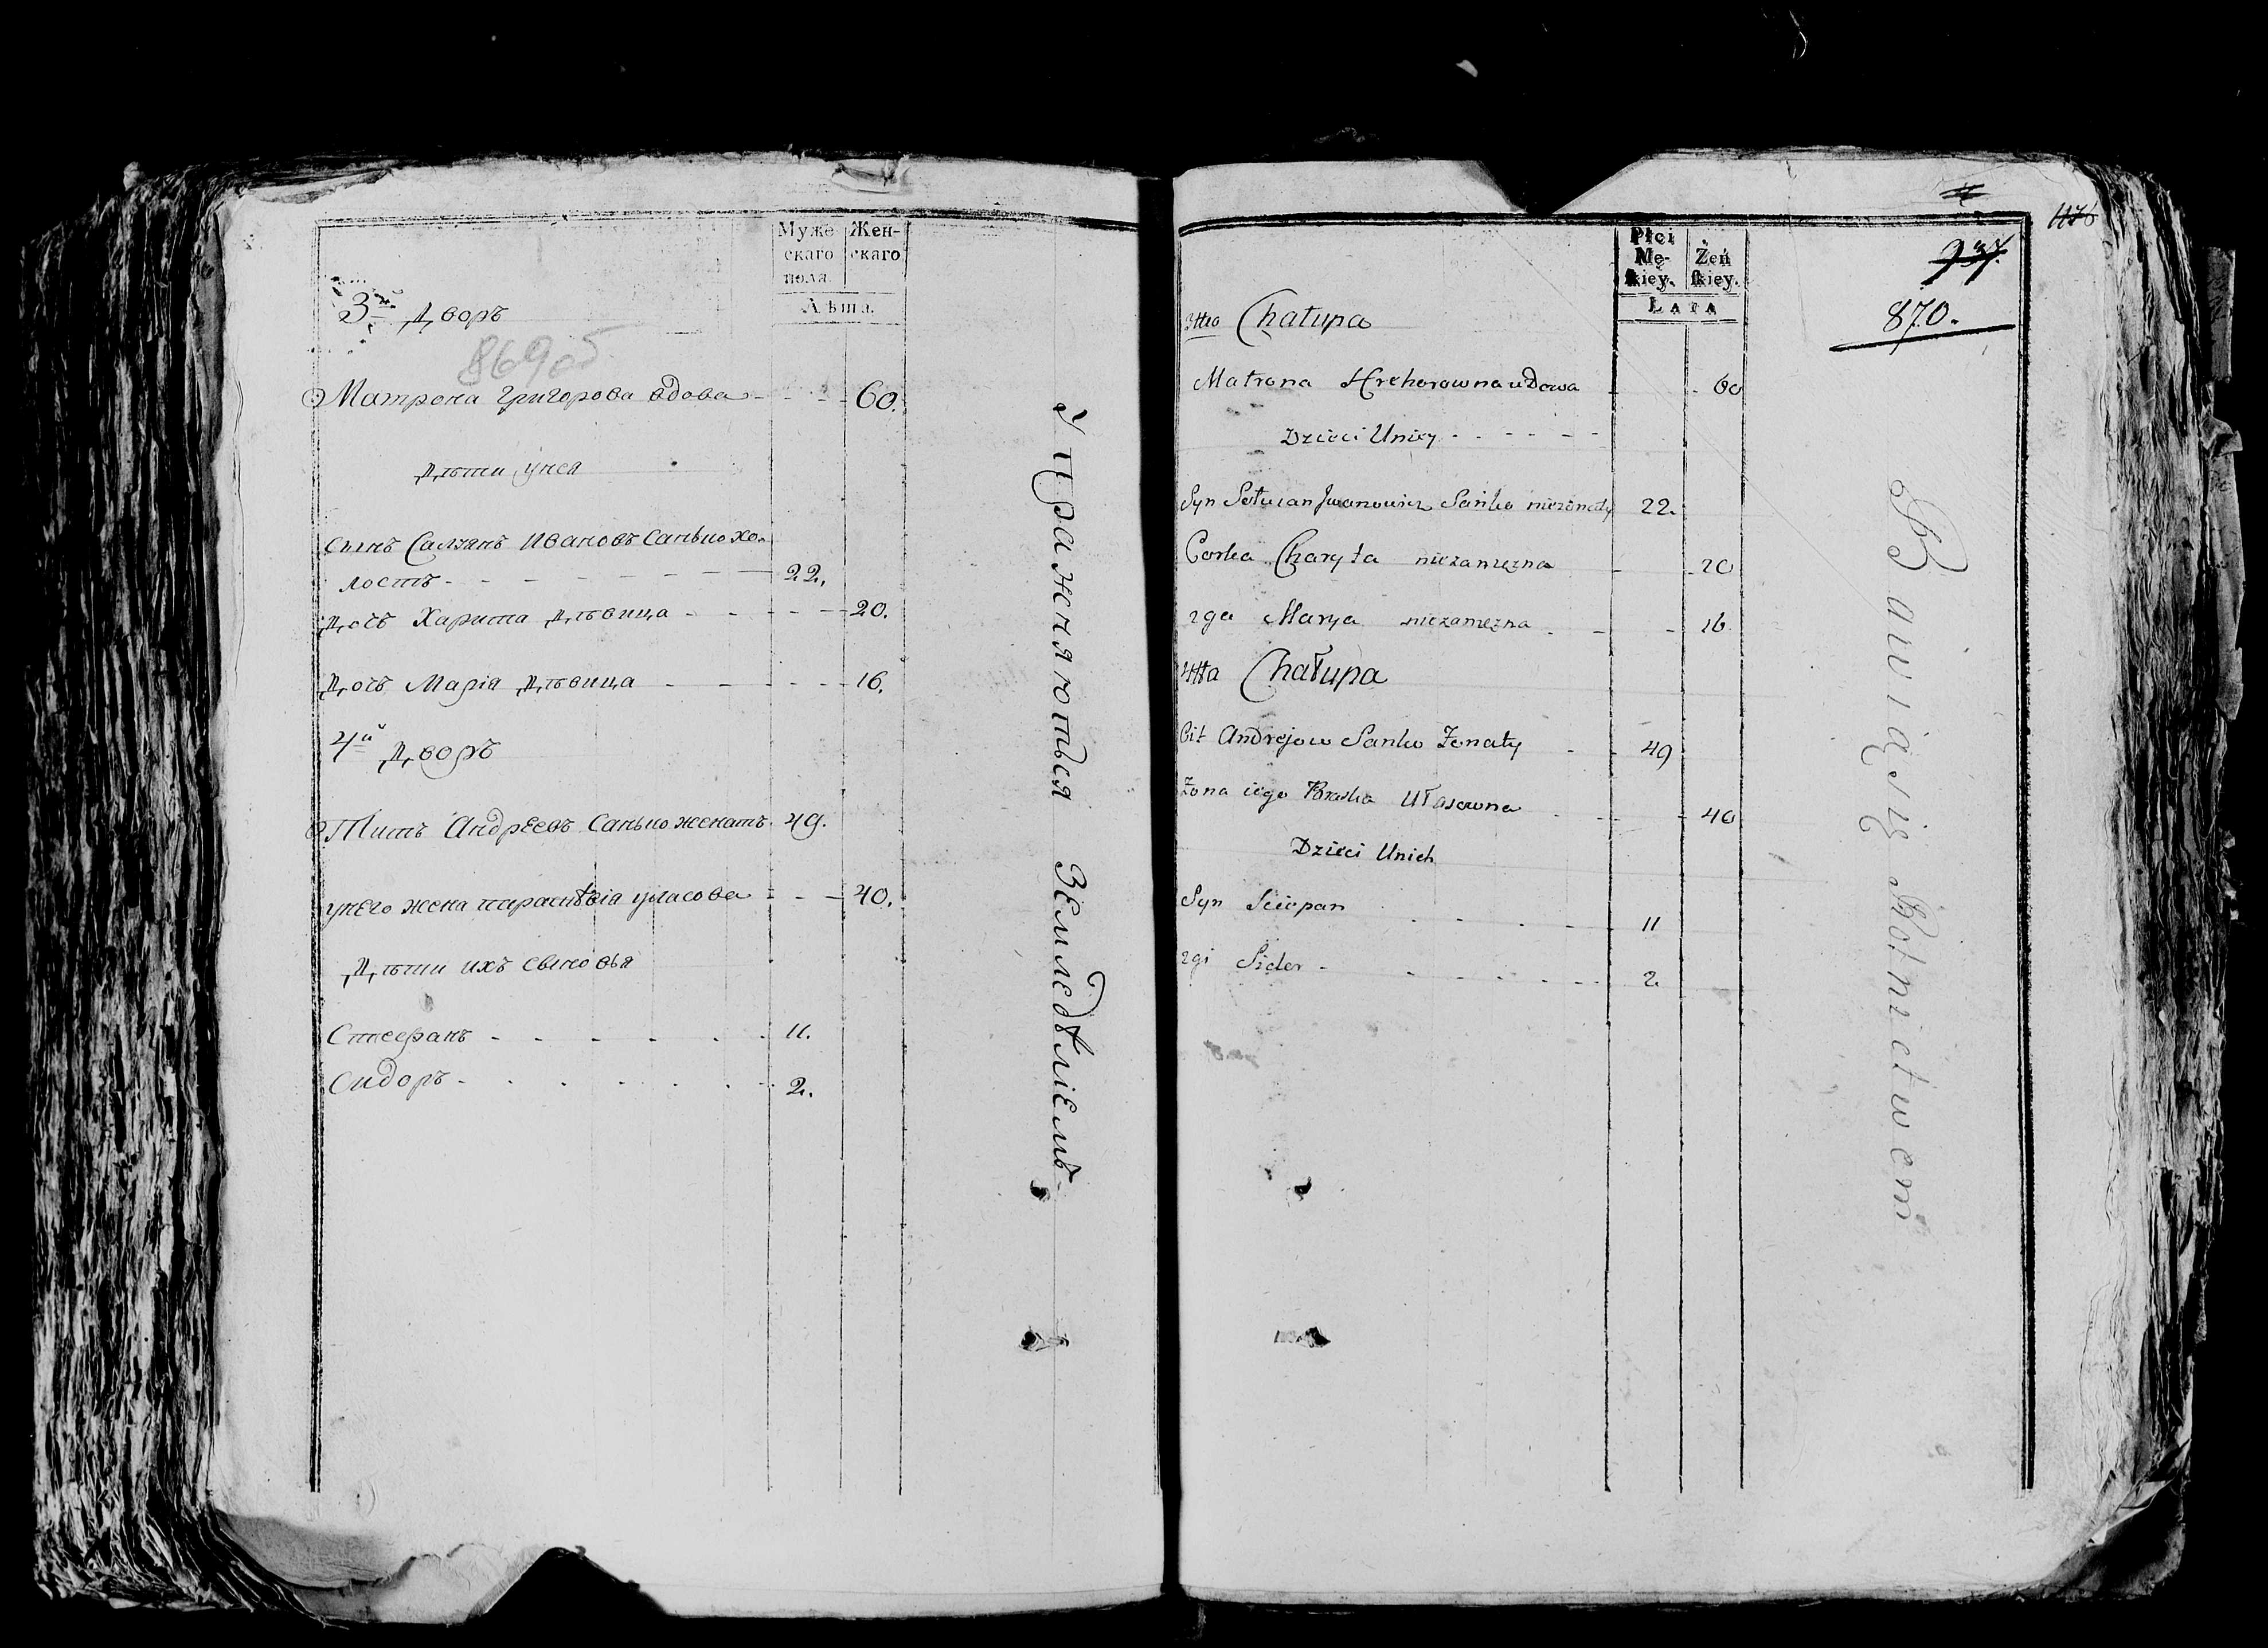 Муже скаго пола.
Жен- скаго
Лѣта.
3й Дворъ
869об
Матрона Григорова вдова - - - 60.
Дѣти унея
Сынъ Салуянъ Ивановъ Санько хо-
лостъ - - - - - - - 22.
Дочь Харита дѣвица - - - - 20.
Дочь Марія дѣвица - - - - - 16.
4й Дворъ
Титъ Андреевъ Санько женатъ. 49.
унего жена парасковія уласова - - - 40.
Дѣти ихъ сыновья
Стефанъ - - - - - - 11.
Сидоръ - - - - - - 2.
Упражняються Земледѣліемъ
Płci Mę- skiey.
Żeń skiey.
LATA
1176
870.
3tto Chałupa
Matrona Hrehorowna udowa - - 60
Dzieci Uniey - - - - - -
Syn Sołuian Jwanowicz Sańko nieżonaty 22.
Corka Charyta niezamezna - - 20
2ga Marya niezamezna - - - 16.
4tta Chałupa
Tit Andrejow Sanko Żonaty - - 49
Żona iego Praska Ułasowna - - - 40
Dzieci Unich
Syn Sciepan - - - - 11
2gi Sidor - - - - - - 2
Bawią się Rolnictwem